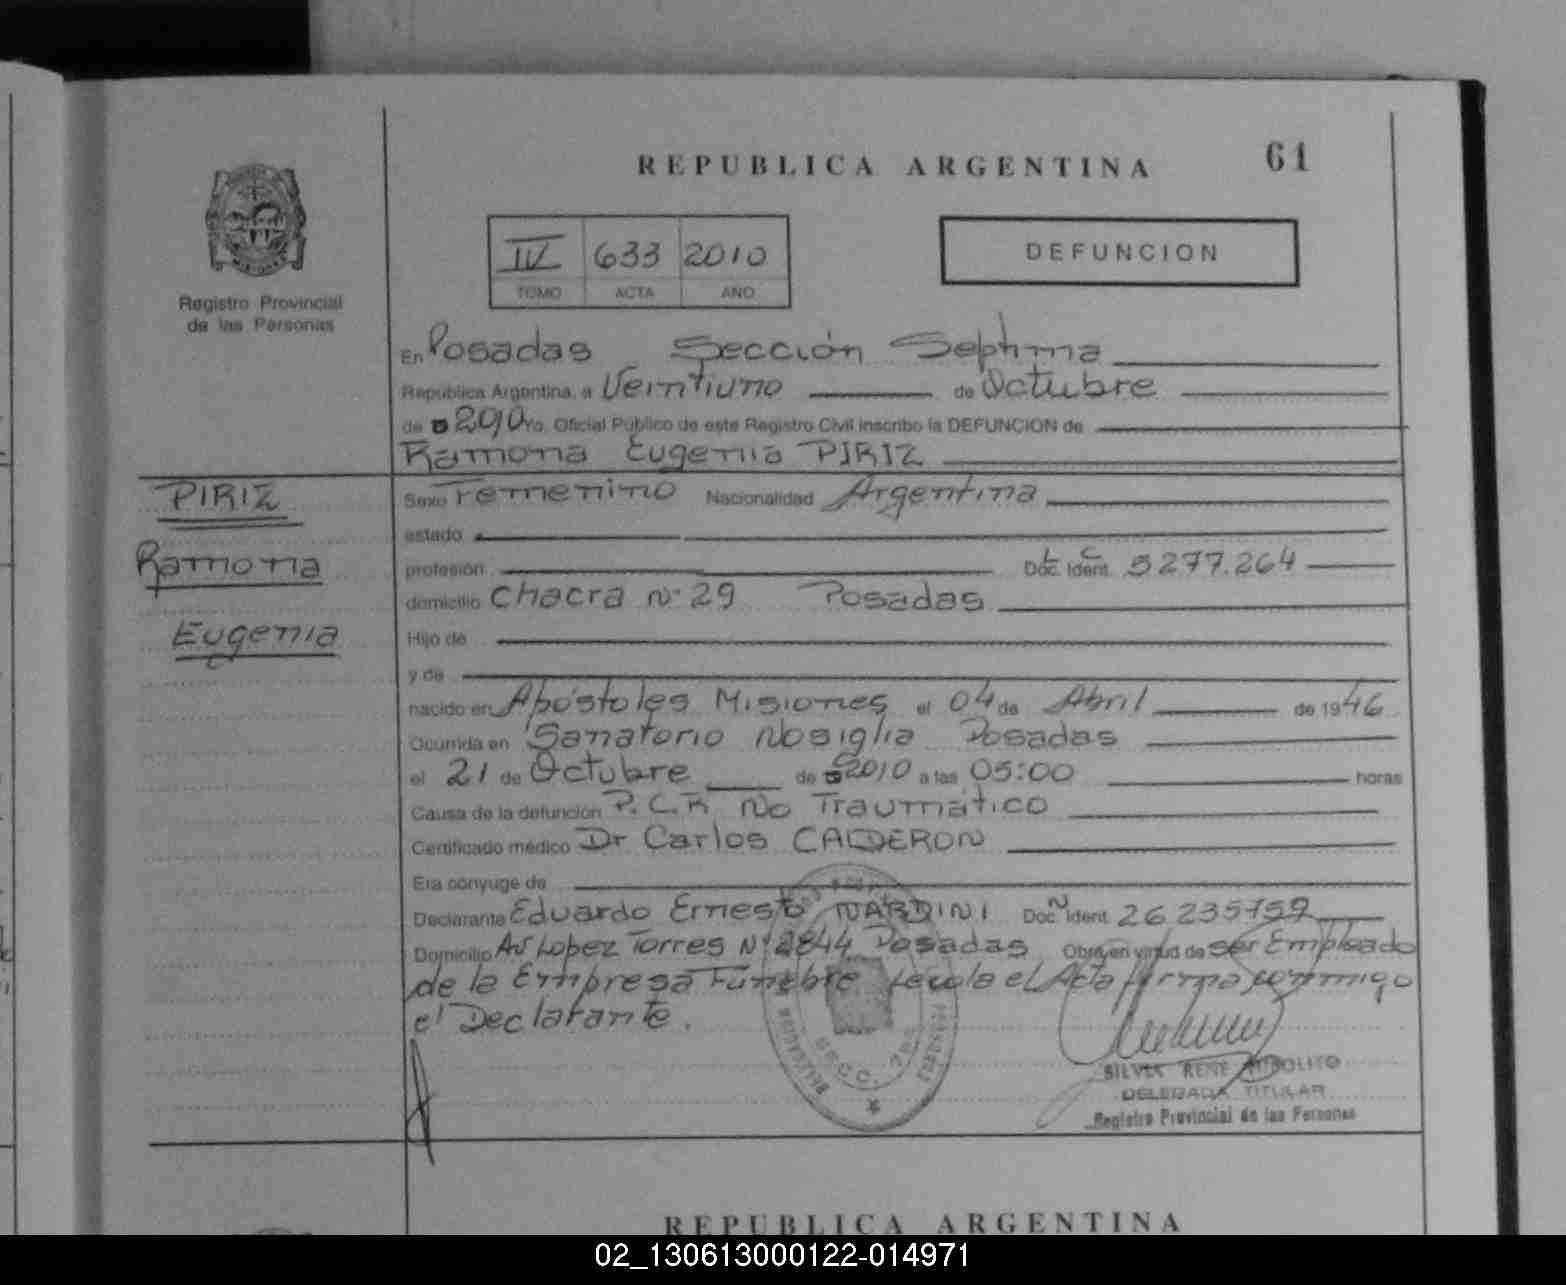 REPUBLICA ARGENTINA 61
IV 633 2010
TOMO ACTA AÑO
DEFUNCION
Registro Provincial
de las Personas
En Posadas Sección Septima
República Argentina, a Veintiuno de Octubre
de 2010 Yo, Oficial Público de este Registro Civil inscribo la DEFUNCION de
Ramona Eugenia PIRIZ
PIRIZ
Ramona
Eugenia
Sexo Femenino Nacionalidad Argentina
estado
profesión L C Doc. Ident. 5277.264
domicilio Chacra Nº 29 Posadas
Hijo de
y de
nacido en Apóstoles Misiones el 04 de Abril de 1946
Ocurrida en Sanatorio Nosiglia Posadas
el 21 de Octubre de 2010 a las 05:00 horas
Causa de la defunción P.C.R No Traumático
Certificado médico Dr Carlos CALDERON
Era cónyuge de
Declarante Eduardo Ernesto NARDINI Doc. N Ident. 26235759
Domicilio Av Lopez Torres Nº 2844 Posadas Obra en virtud de ser Empleado
de la Empresa Funebre Leida el Acta firma conmigo
el Declarante.
SECC. 7
SILVIA RENE
DELEGADA TITULAR
Registro Provincial de las Personas
REPUBLICA ARGENTINA
02_130613000122-014971